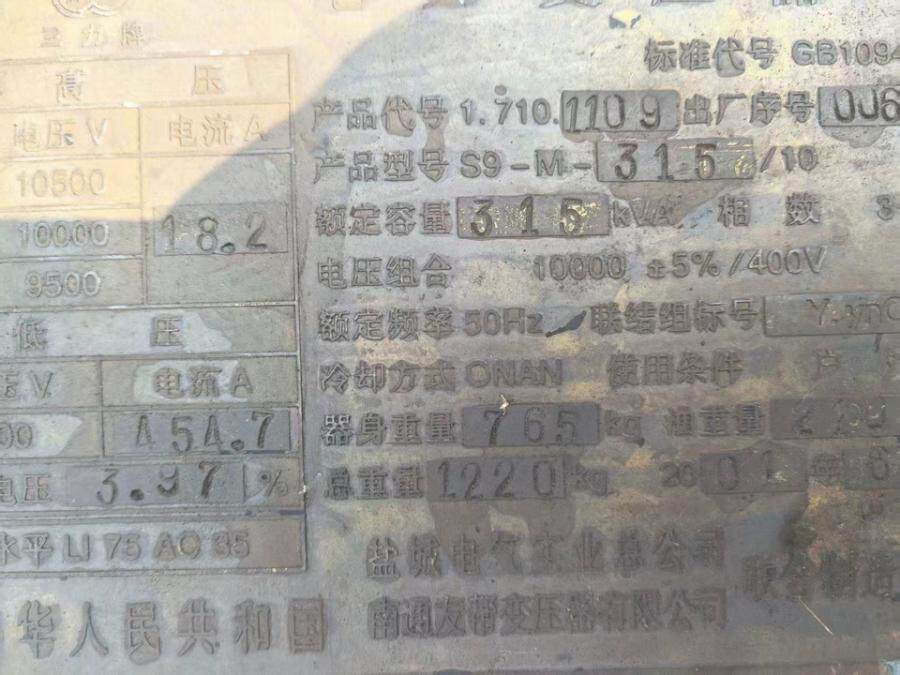 三力牌
标准代号 GB1094
高 压
电压V 电流A
产品代号 1.710.1109 出厂序号 006
10500
产品型号 S9-M-315/10
10000 18.2
额定容量 315 kVA 相数 3
9500
电压组合 10000 ±5%/400V
低 压
额定频率 50Hz 联结组标号 Y·yn0
V 电流A
冷却方式 ONAN 使用条件 户
00 454.7
器身重量 765 kg 油重量
电压 3.97 %
总重量 1220 kg 2001 年
水平 LI 75 AC 35
盐城电气实业总公司
联合制造
华人民共和国
南通友帮变压器有限公司